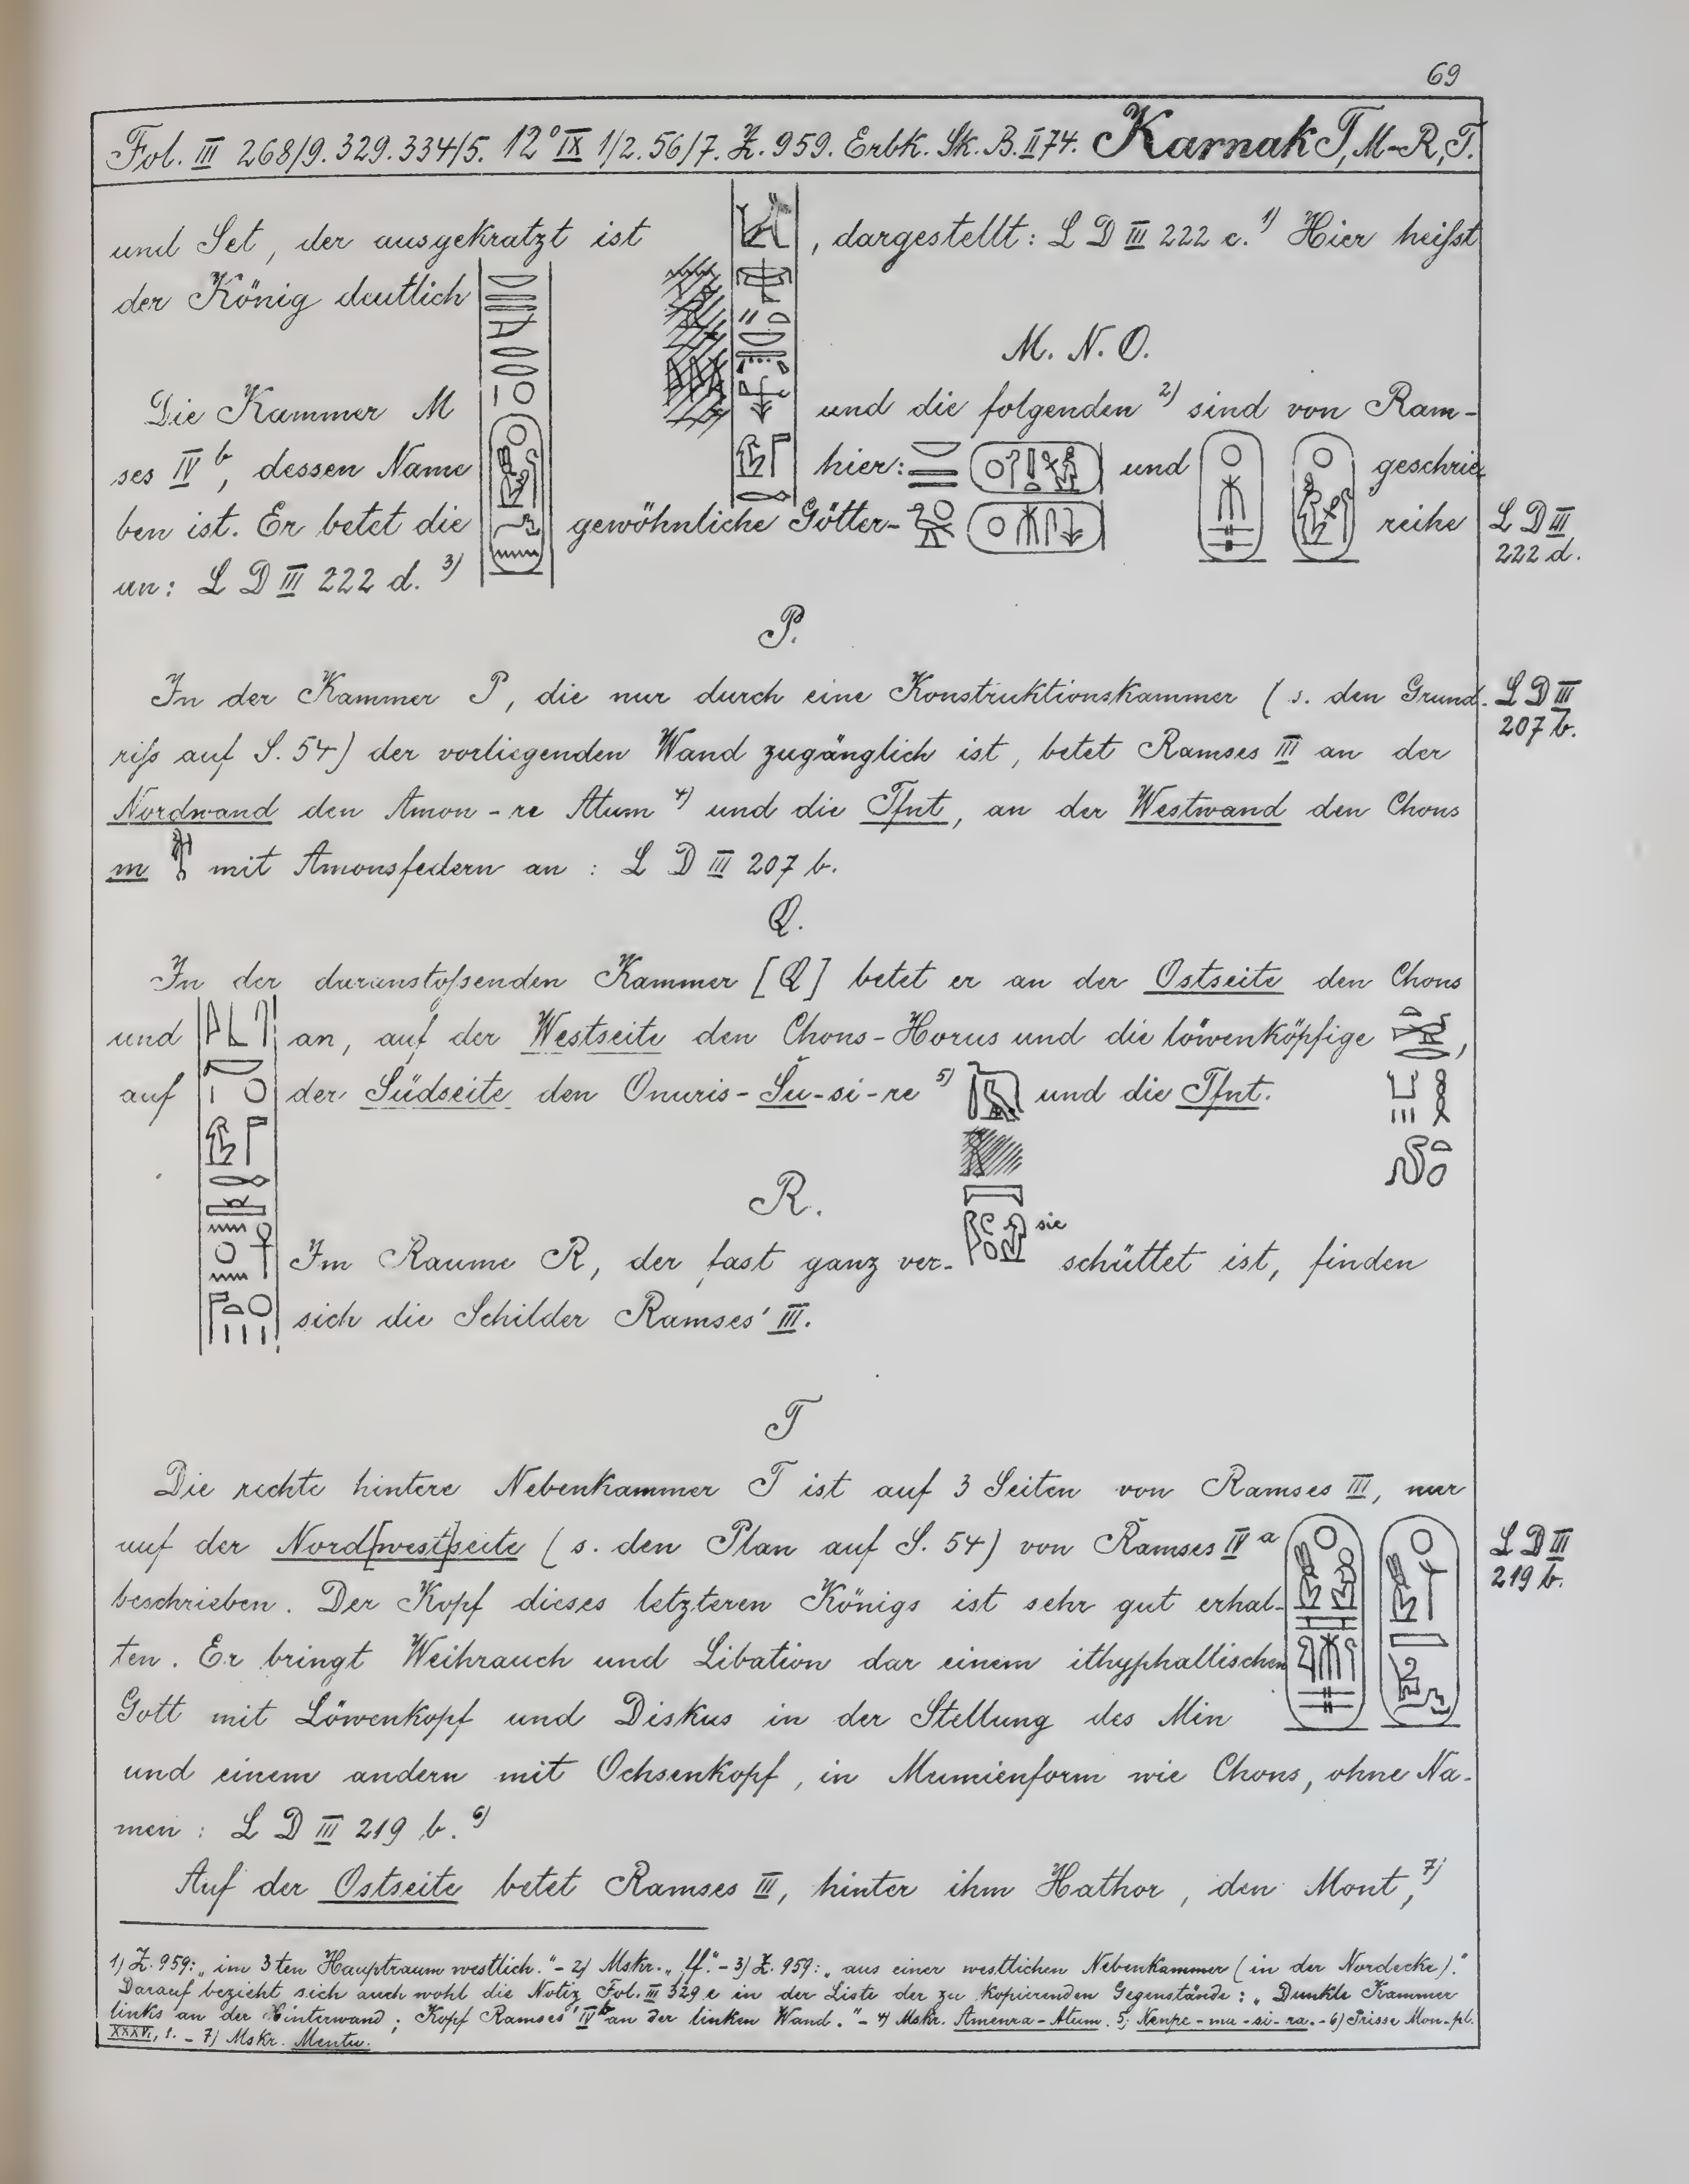 69
Fol. III 268/9. 329. 334/5. 12° IX 1/2. 56/7. Z. 959. Erbk. Sk. B. II 74. Karnak T, M-R, T.
und Set, der ausgekratzt ist , dargestellt: L D III 222 c. 1) Hier heißt
der König deutlich
M. N. O.
Die Kammer M und die folgenden 2) sind von Ram-
ses IV b, dessen Name hier: und geschrie
ben ist. Er betet die gewöhnliche Götter- reihe
L D III
222 d.
an: L D III 222 d. 3)
P.
In der Kammer P, die nur durch eine Konstruktionskammer (s. den Grund-
L D III
207 b.
riß auf S. 54) der vorliegenden Wand zugänglich ist, betet Ramses III an der
Nordwand den Amon-re Atum 4) und die Tfnt, an der Westwand den Chons
m mit Amonsfedern an : L D III 207 b.
Q.
In der daranstoßenden Kammer [Q] betet er an der Ostseite den Chons
und an, auf der Westseite den Chons-Horus und die löwenköpfige ,
auf der Südseite den Onuris-Šu-si-re 5) und die Tfnt.
R.
sic
Im Raume R, der fast ganz ver- schüttet ist, finden
sich die Schilder Ramses' III.
T
Die rechte hintere Nebenkammer T ist auf 3 Seiten von Ramses III, nur
auf der Nord[west]seite (s. den Plan auf S. 54) von Ramses IV a
L D III
219 b.
beschrieben. Der Kopf dieses letzteren Königs ist sehr gut erhal-
ten. Er bringt Weihrauch und Libation dar einem ithyphallischen
Gott mit Löwenkopf und Diskus in der Stellung des Min
und einem andern mit Ochsenkopf, in Mumienform wie Chons, ohne Na-
men : L D III 219 b. 6)
Auf der Ostseite betet Ramses III, hinter ihm Hathor, den Mont, 7)
1) Z. 959: „im 3ten Hauptraum westlich." - 2) Mskr. „ff." - 3) Z. 959: „aus einer westlichen Nebenkammer (in der Nordecke)."
Darauf bezieht sich auch wohl die Notiz Fol. III 329 e in der Liste der zu kopierenden Gegenstände: „Dunkle Kammer
links an der Hinterwand; Kopf Ramses' IV b an der linken Wand." - 4) Mskr. Amenra-Atum. 5) Nenpe-mu-si-ra. - 6) Prisse Mon. pl.
XXXVI, 1. - 7) Mskr. Mentu.